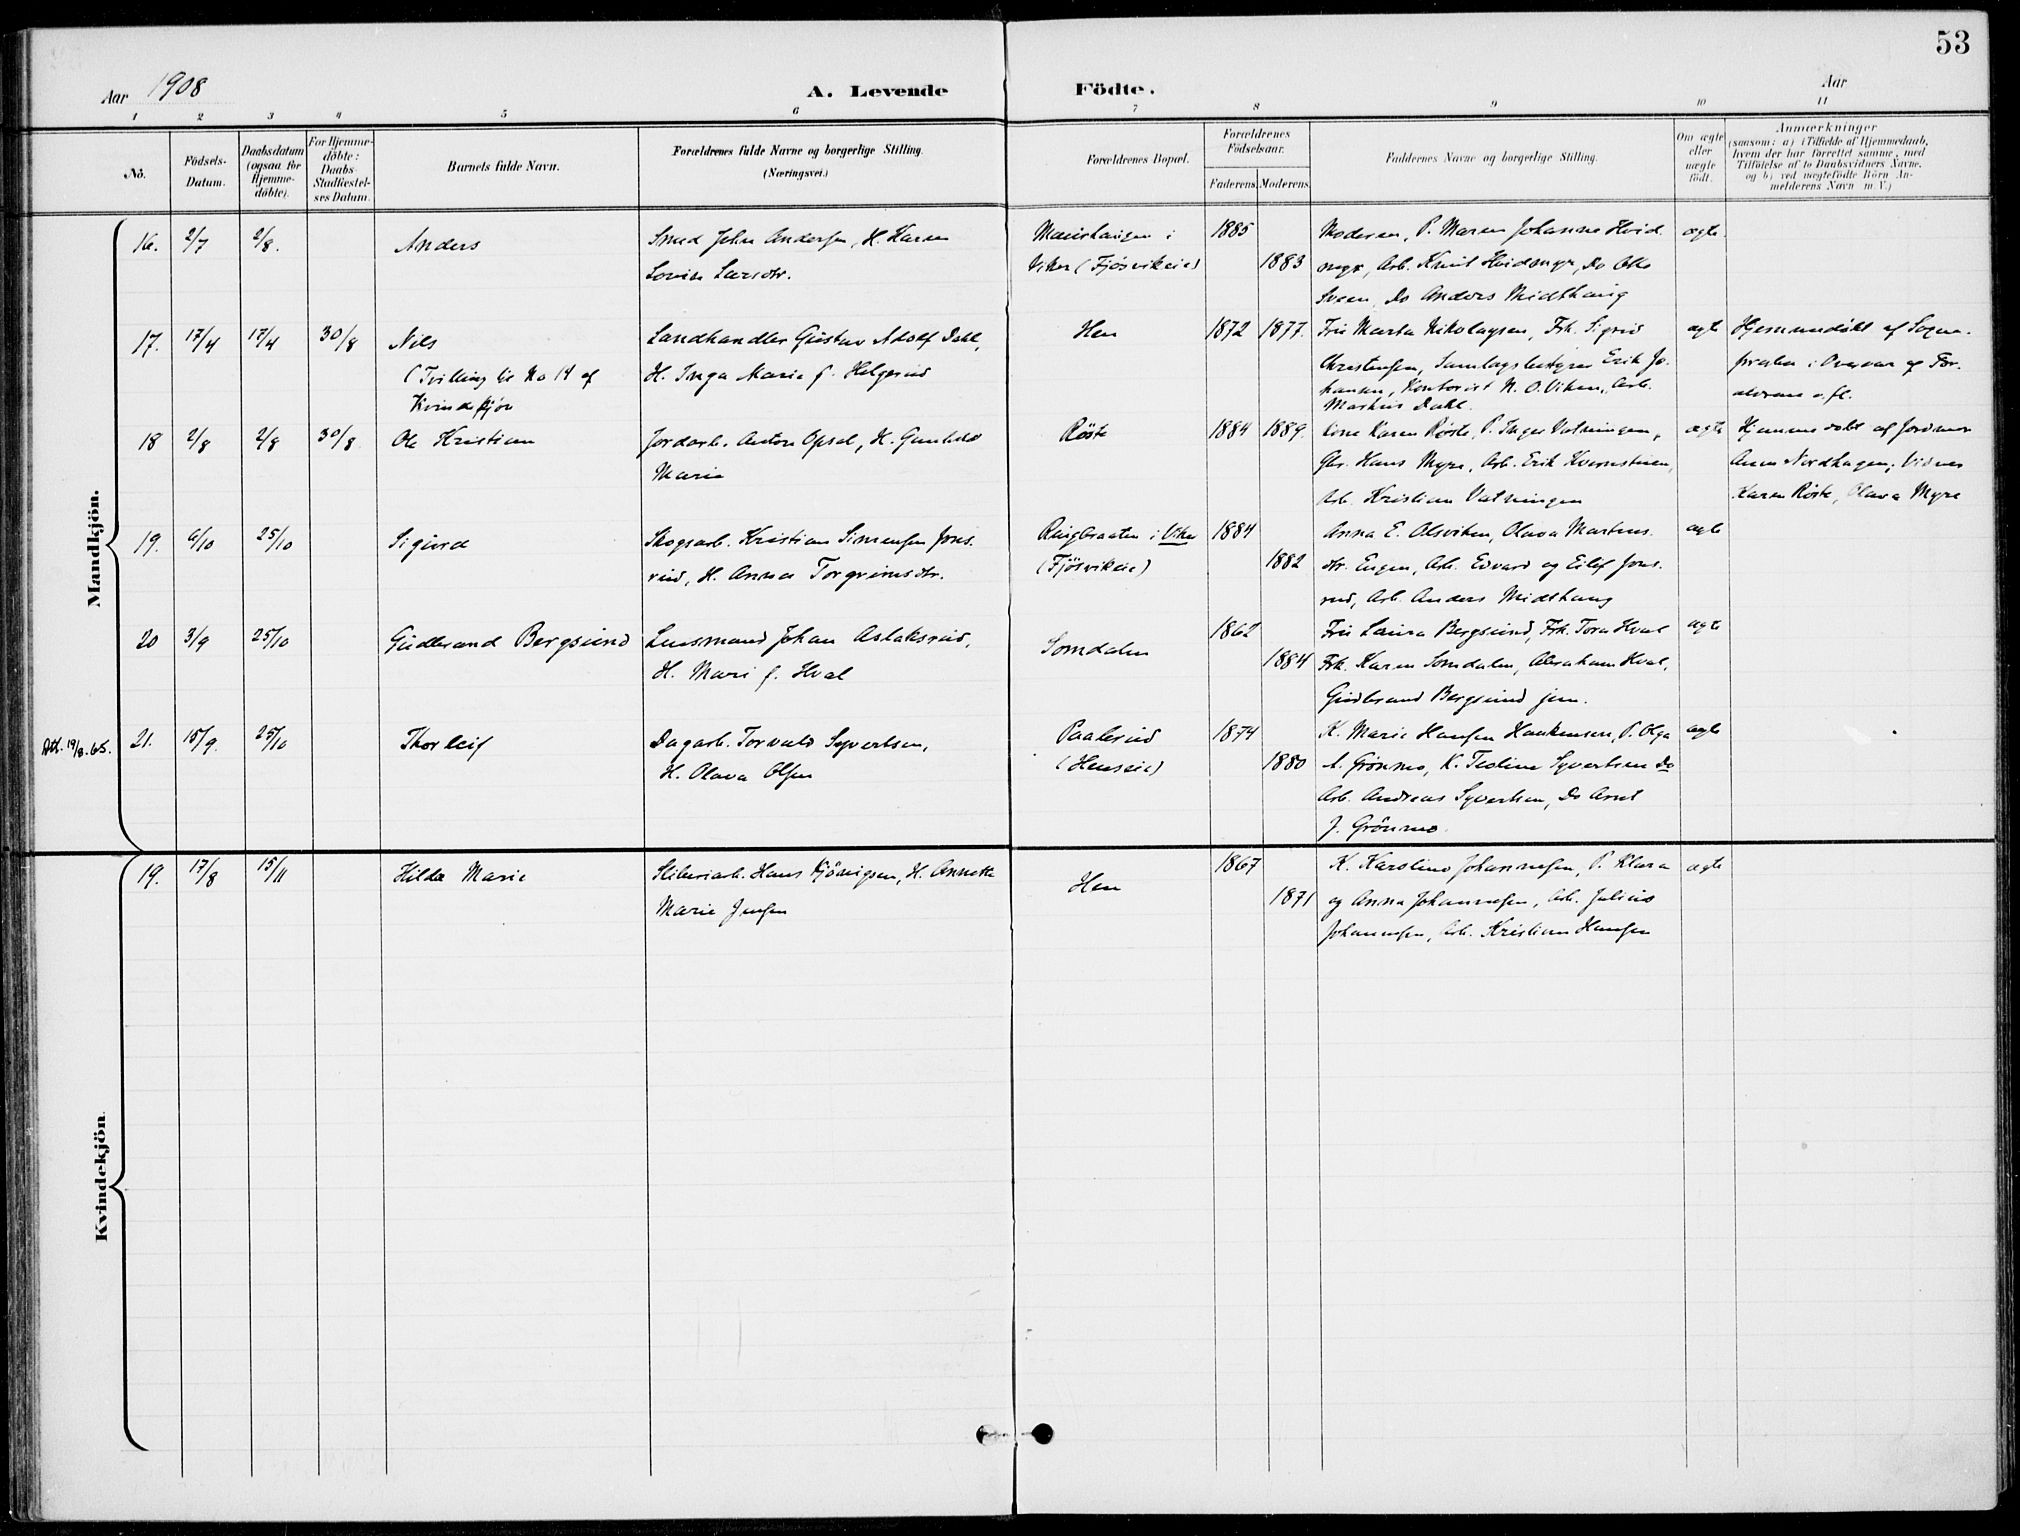 53
Aar 1908
A. Levende Födte.
Aar
1 2 3 4 5 6 7 8 9 10 11
No.
Födsels-
Datum.
Daabsdatum
(ogsaa for
Hjemme-
döbte).
For Hjemme-
döbte:
Daabs
Stadfæstel-
ses Datum.
Barnets fulde Navn.
Forældrenes fulde Navne og borgerlige Stilling.
(Næringsvei.)
Forældrenes Bopæl.
Forældrenes
Födselsaar.
Faderens Moderens
Faddernes Navne og borgerlige Stilling.
Om ægte
eller
uægte
født.
Anmærkninger
(saasom: a) i Tilfælde af Hjemmedaab,
hvem der har forrettet samme, med
Tilföielse af to Daabsvidners Navne,
og b) ved uægtefödte Börn An-
melderens Navn m. V.)
Mandkjön.
16. 2/7 2/8. Anders
Smed John Andersen, H. Karen
Lovise Larsdtr.
i
Viker (Fjösvikeie)
1885
1883
Moderen, P. Maren Johanne Hvid
myr, Arb. Knut Hvidmyr, Do Otto
Sveen, Do Anders Midthaug
ægte
17. 17/4 17/4 30/8 Nils
(Tvilling til No 14 af
Kvindekjön
Landhandler Gustav Adolf Dahl,
H. Inga Marie f. Helgerud
Hen
1872 1877.
Fru Marta Nikolaysen, Frk. Sigrid
Christensen, Samlagsbestyrer Erik Jo-
hansen, Kontorist N. O. Viken, Arb.
Markus Dahl.
ægte
Hjemmedöbt af Sogne-
presten i Overvær af For-
ældrene o. fl.
18 2/8 2/8 30/8. Ole Kristian
Jordarb. Anton Opsal, H. Gunhild
Marie
Röste
1884 1889.
Kone Karen Röste, P. Inger Vatningen,
Gbr. Hans Myre, Arb. Erik Kvernstuen,
Arb. Kristian Vatningen
ægte
Hjemmedöbt af Jordmor
Anna Nordhagen; Vidner
Karen Röste, Olava Myre
19. 6/10 25/10 Sigurd
Skogsarb. Kristian Simensen Jons-
rud, H. Anna Torgrimsdtr.
Rugbraaten i Viker
(Fjösvikeie)
1884
1882
Anna E. Olsviken, Olava Martins-
dtr. Engen, Arb. Edvard og Eilef Jons-
rud, Arb. Anders Midthaug
ægte
20 3/9 25/10 Gudbrand Bergsund
Lensmand Johan Aslaksrud,
H. Mari f. Hval
Somdalen
1862
1884
Fru Laura Bergsund, Frk. Tora Hval
Frk. Karen Somdalen, Abraham Hval,
Gudbrand Bergsund jun.
ægte
Att. 19/8. 65.
21. 15/9. 25/10 Thorleif
Dagarb. Torvald Syvertsen,
H. Olava Olsen
Paalsrud
(Henseie)
1874
1880
K. Marie Hansen Haakensen, P. Olga
A. Grönmo, K. Teoline Syvertsen Do
Arb. Andreas Syvertsen, Do Arnt
J. Grönmo.
ægte
Kvindekjön.
19. 17/8 15/11 Hilda Marie
Sliberiarb. Hans Kjönigsen, H. Annette
Marie Jensen
Hen
1867
1871
K. Karoline Johannesen, P. Klara
og Anna Johannesen, Arb. Julius
Johannesen, Arb. Kristian Hansen
ægte